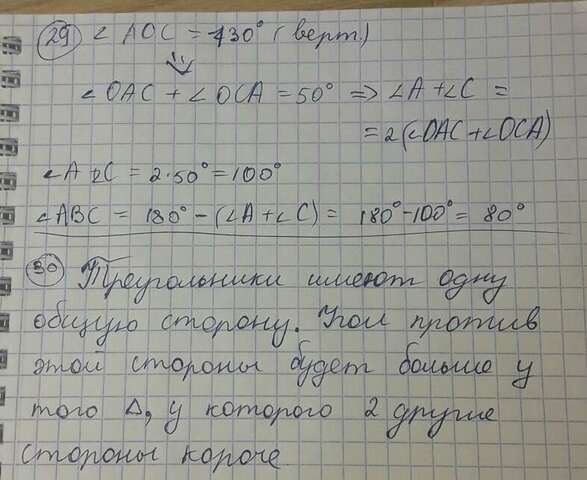 29 ∠ AOC = 130° (верт.)
⇓
∠OAC + ∠OCA = 50° => ∠A + ∠C =
= 2(∠OAC + ∠OCA)
∠A + ∠C = 2·50° = 100°
∠ABC = 180° - (∠A + ∠C) = 180° - 100° = 80°
30 Треугольники имеют одну
общую сторону. Угол против
этой стороны будет больше у
того Δ, у которого 2 другие
стороны короче